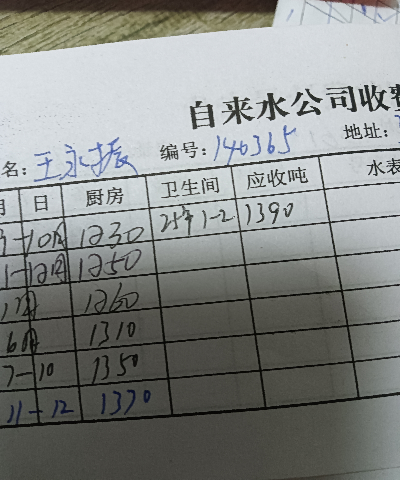 自来水公司收费
名：王永振 编号：140365 地址：
月 日 厨房 卫生间 应收吨 水表
9-10月 1230 25年1-2 1390
11-12月 1250
1260
6月 1310
7-10 1350
11-12 1370